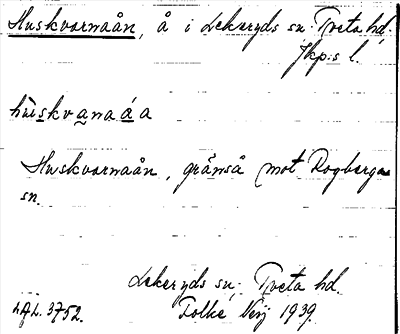 Huskvarnaån, å i Lekeryds sn. Tveta hd.
Jkp.s l.
hùskvanaáa
Huskvarnaån, gränså mot Rogberga
sn.
Lekeryds sn, Tveta hd.
LAL. 3752. Folke Neij 1939.